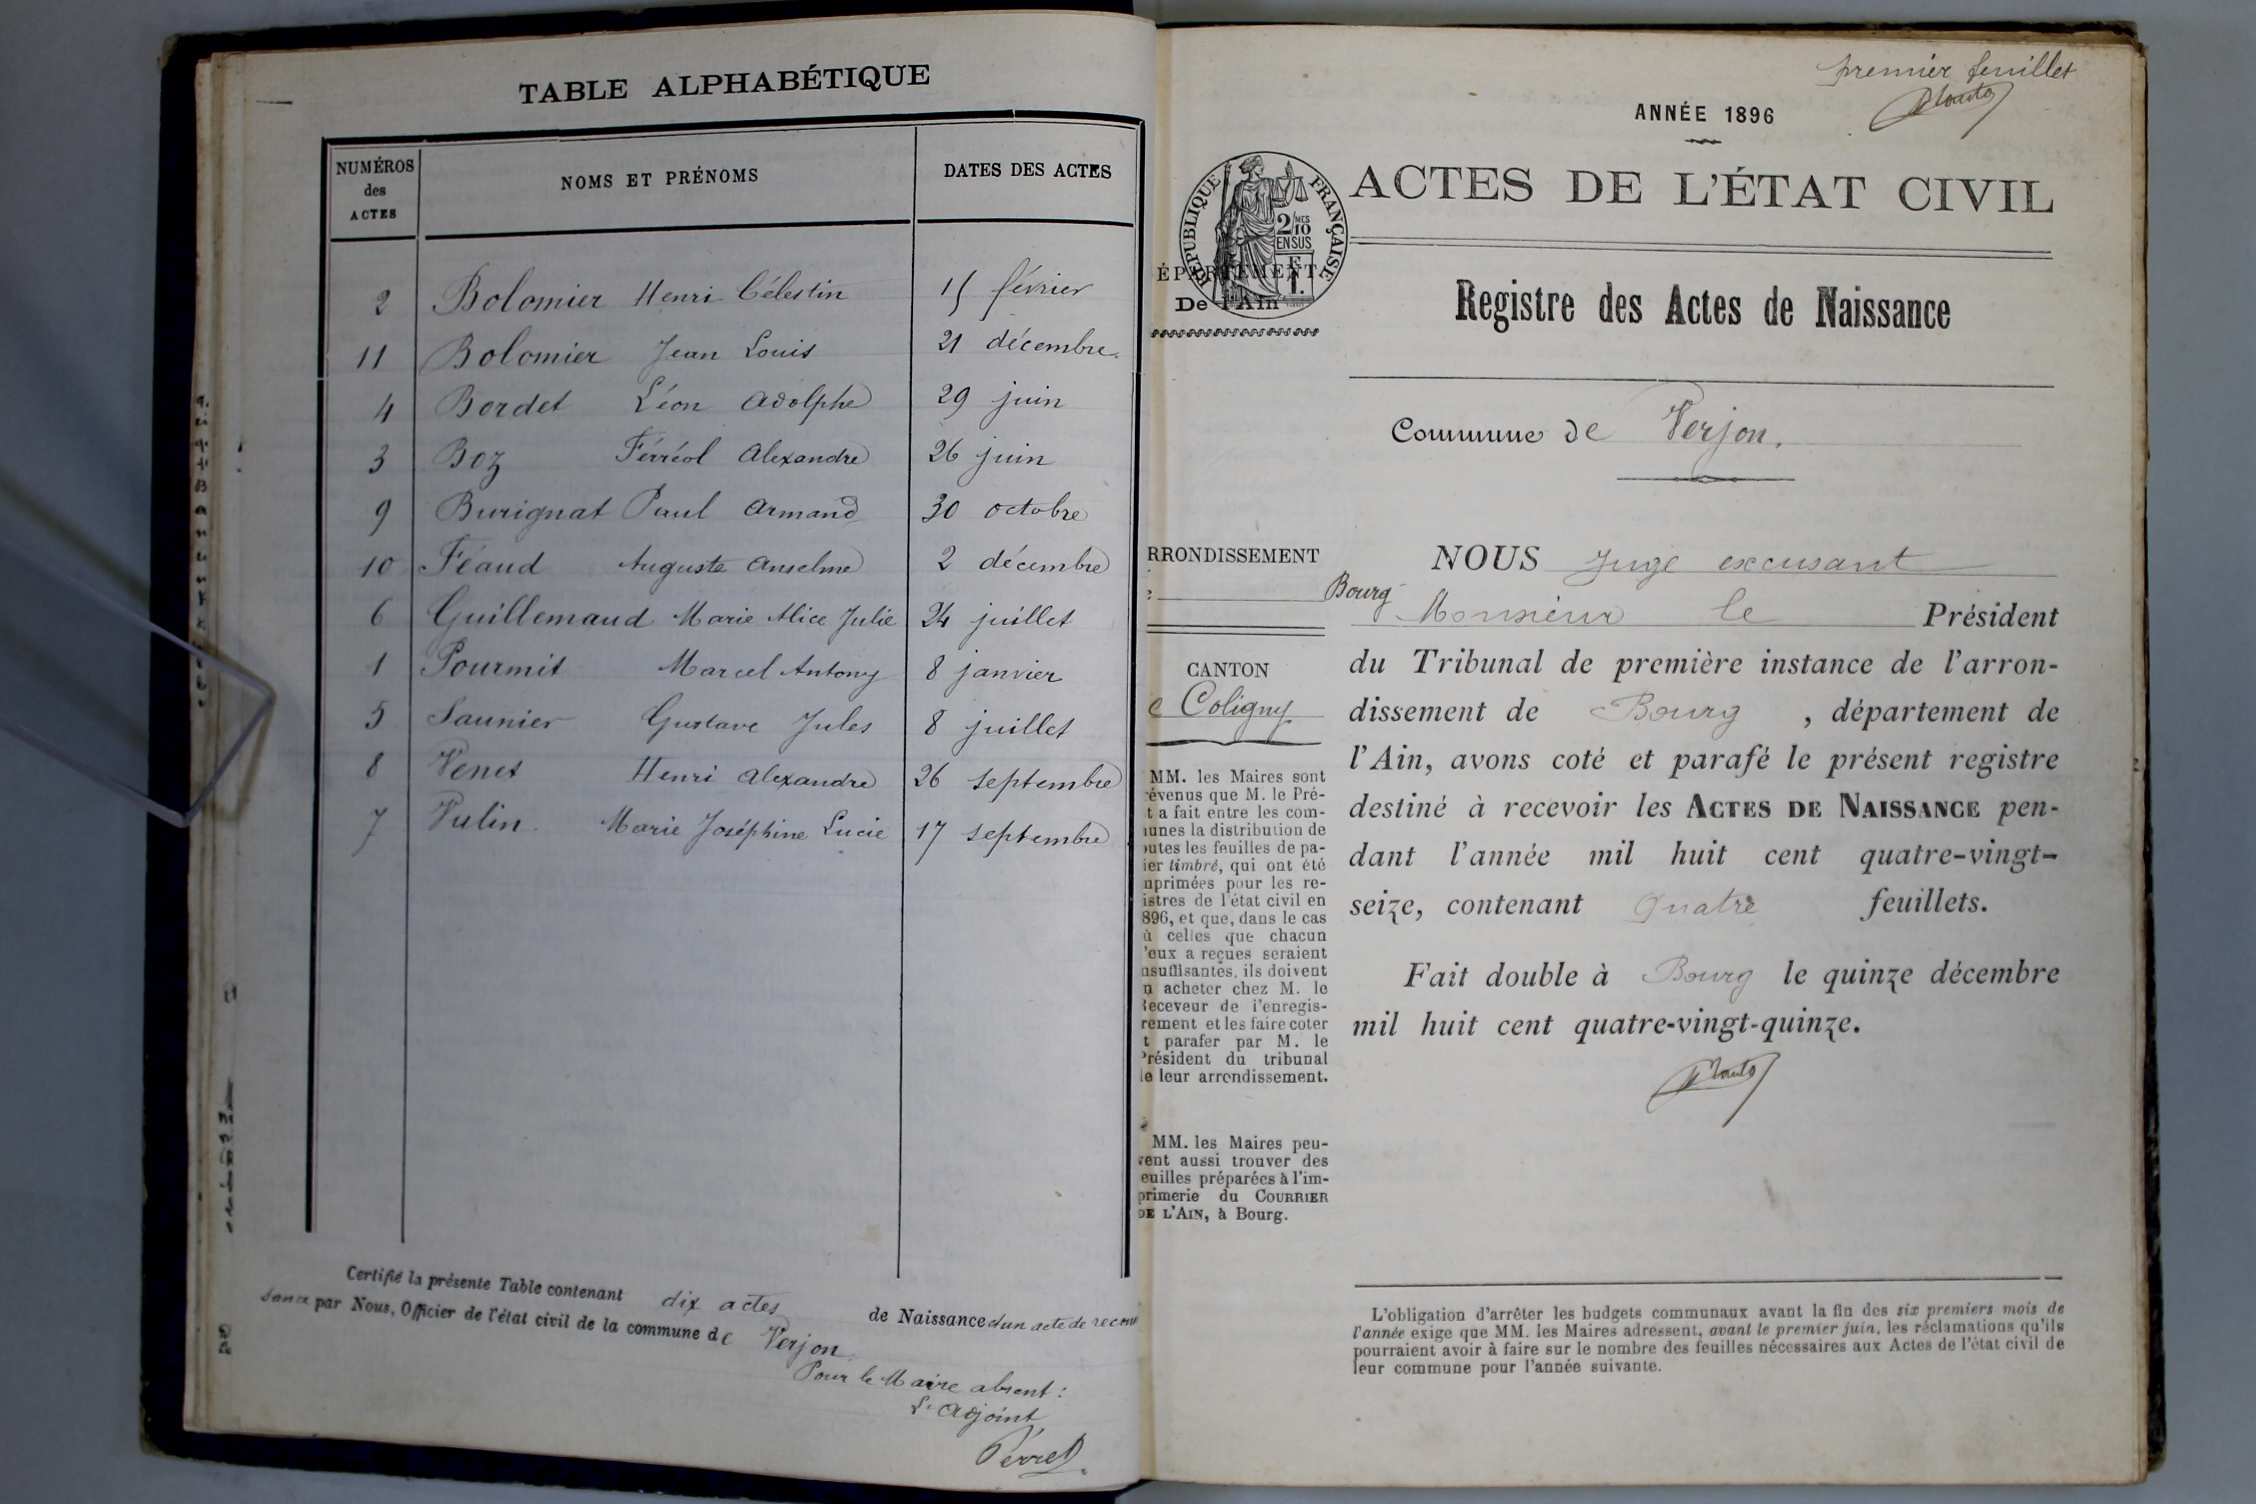 TABLE ALPHABÉTIQUE
NUMÉROS des ACTES NOMS ET PRÉNOMS DATES DES ACTES
2 Bolomier Henri Célestin 15 février
11 Bolomier Jean Louis 21 décembre
4 Bordet Léon Adolphe 29 juin
3 Boz Férréol Alexandre 26 juin
9 Burignat Paul Armand 30 octobre
10 Féaud Auguste Anselme 2 décembre
6 Guillemaud Marie Alice Julie 24 juillet
1 Pourmit Marcel Antony 8 janvier
5 Saunier Gustave Jules 8 juillet
8 Venet Henri Alexandre 26 septembre
7 Vulin Marie Joséphine Lucie 17 septembre
Certifié la présente Table contenant dix actes de Naissance d'un acte de reconn
sance par Nous, Officier de l'état civil de la commune de Verjon
Pour le Maire absent :
L'adjoint
Perret
premier feuillet
ANNÉE 1896
ACTES DE L'ÉTAT CIVIL
RÉPUBLIQUE FRANÇAISE
2/10 MES
EN SUS
ÉPARTEMENT
De l'Ain
Registre des Actes de Naissance
Commune de Verjon.
RRONDISSEMENT
Bourg
CANTON
e Coligny
MM. les Maires sont
évenus que M. le Pré-
t a fait entre les com-
unes la distribution de
outes les feuilles de pa-
ier timbré, qui ont été
mprimées pour les re-
istres de l'état civil en
896, et que, dans le cas
ù celles que chacun
'eux a reçues seraient
nsuffisantes, ils doivent
n acheter chez M. le
Receveur de l'enregis-
rement et les faire coter
t parafer par M. le
Président du tribunal
de leur arrondissement.
MM. les Maires peu-
vent aussi trouver des
euilles préparées à l'im-
primerie du COURRIER
DE L'AIN, à Bourg.
NOUS Juge excusant
Monsieur le Président
du Tribunal de première instance de l'arron-
dissement de Bourg, département de
l'Ain, avons coté et parafé le présent registre
destiné à recevoir les ACTES DE NAISSANCE pen-
dant l'année mil huit cent quatre-vingt-
seize, contenant Quatre feuillets.
Fait double à Bourg le quinze décembre
mil huit cent quatre-vingt-quinze.
L'obligation d'arrêter les budgets communaux avant la fin des six premiers mois de
l'année exige que MM. les Maires adressent, avant le premier juin, les réclamations qu'ils
pourraient avoir à faire sur le nombre des feuilles nécessaires aux Actes de l'état civil de
leur commune pour l'année suivante.